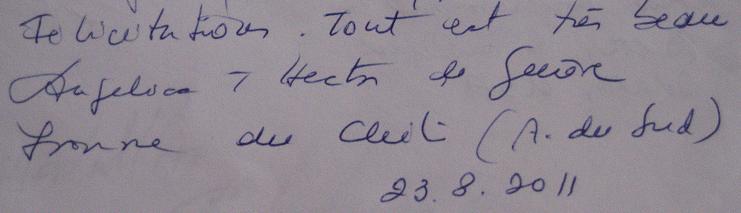 Felicitations. Tout est très beau
Angelica y Hector de Genève
du Chili (A. du Sud)
23.8.2011